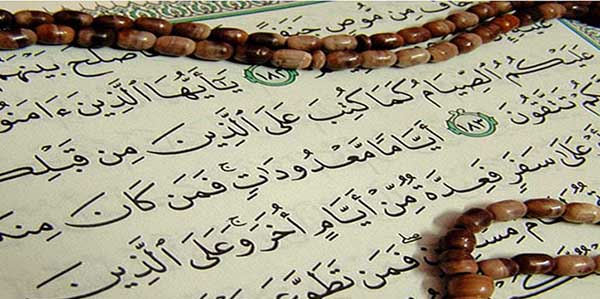 مِن مُّوصٍ جَنَفًا
فَأَصْلَحَ بَيْنَهُمْ ١٨٢ يَٰٓأَيُّهَا ٱلَّذِينَ ءَامَنُوا
عَلَيْكُمُ ٱلصِّيَامُ كَمَا كُتِبَ عَلَى ٱلَّذِينَ مِن قَبْلِكُمْ
تَتَّقُونَ ١٨٣ أَيَّامًا مَّعْدُودَٰتٍ ۚ فَمَن كَانَ مِنكُم
عَلَىٰ سَفَرٍ فَعِدَّةٌ مِّنْ أَيَّامٍ أُخَرَ ۚ وَعَلَى ٱلَّذِينَ
فَمَن تَطَوَّعَ